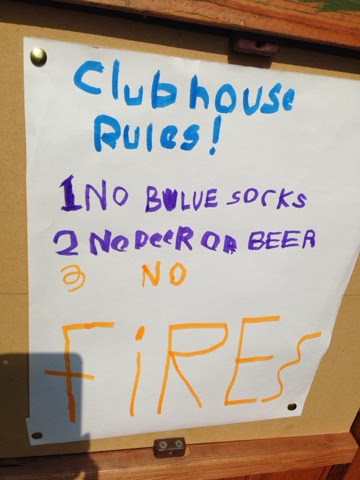 Clubhouse
Rules!
1 NO BULUE SOCKS
2 NO DEER OR BEER
3 NO
FiRES